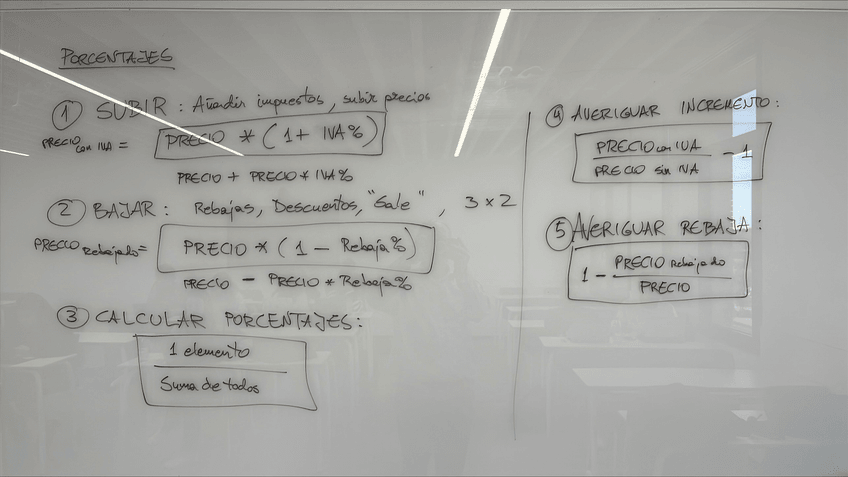 PORCENTAJES
① SUBIR : Añadir impuestos, subir precios
PRECIO con IVA = PRECIO * (1 + IVA%)
PRECIO + PRECIO * IVA%
② BAJAR : Rebajas, Descuentos, "Sale", 3x2
PRECIO Rebajado = PRECIO * (1 - Rebaja%)
PRECIO - PRECIO * Rebaja%
③ CALCULAR PORCENTAJES :
1 elemento
Suma de todos
④ AVERIGUAR INCREMENTO :
PRECIO con IVA
PRECIO sin IVA
- 1
⑤ AVERIGUAR REBAJA :
1 -
PRECIO Rebajado
PRECIO